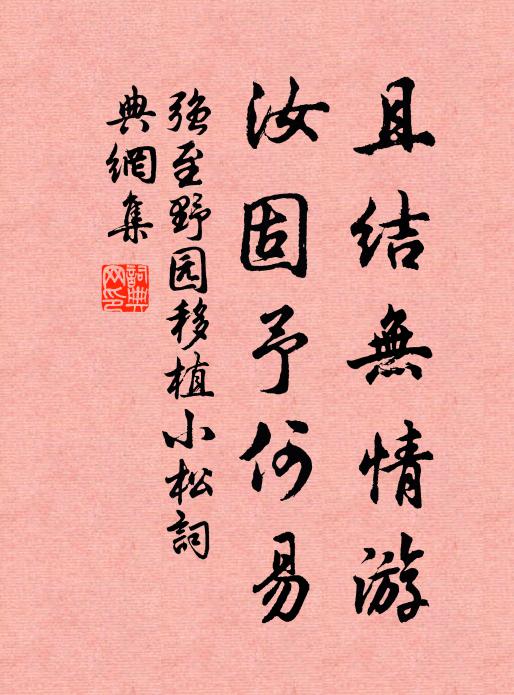 且结無情游
汝固予何易
强至野园移植小松詞
典網集
詞典网印